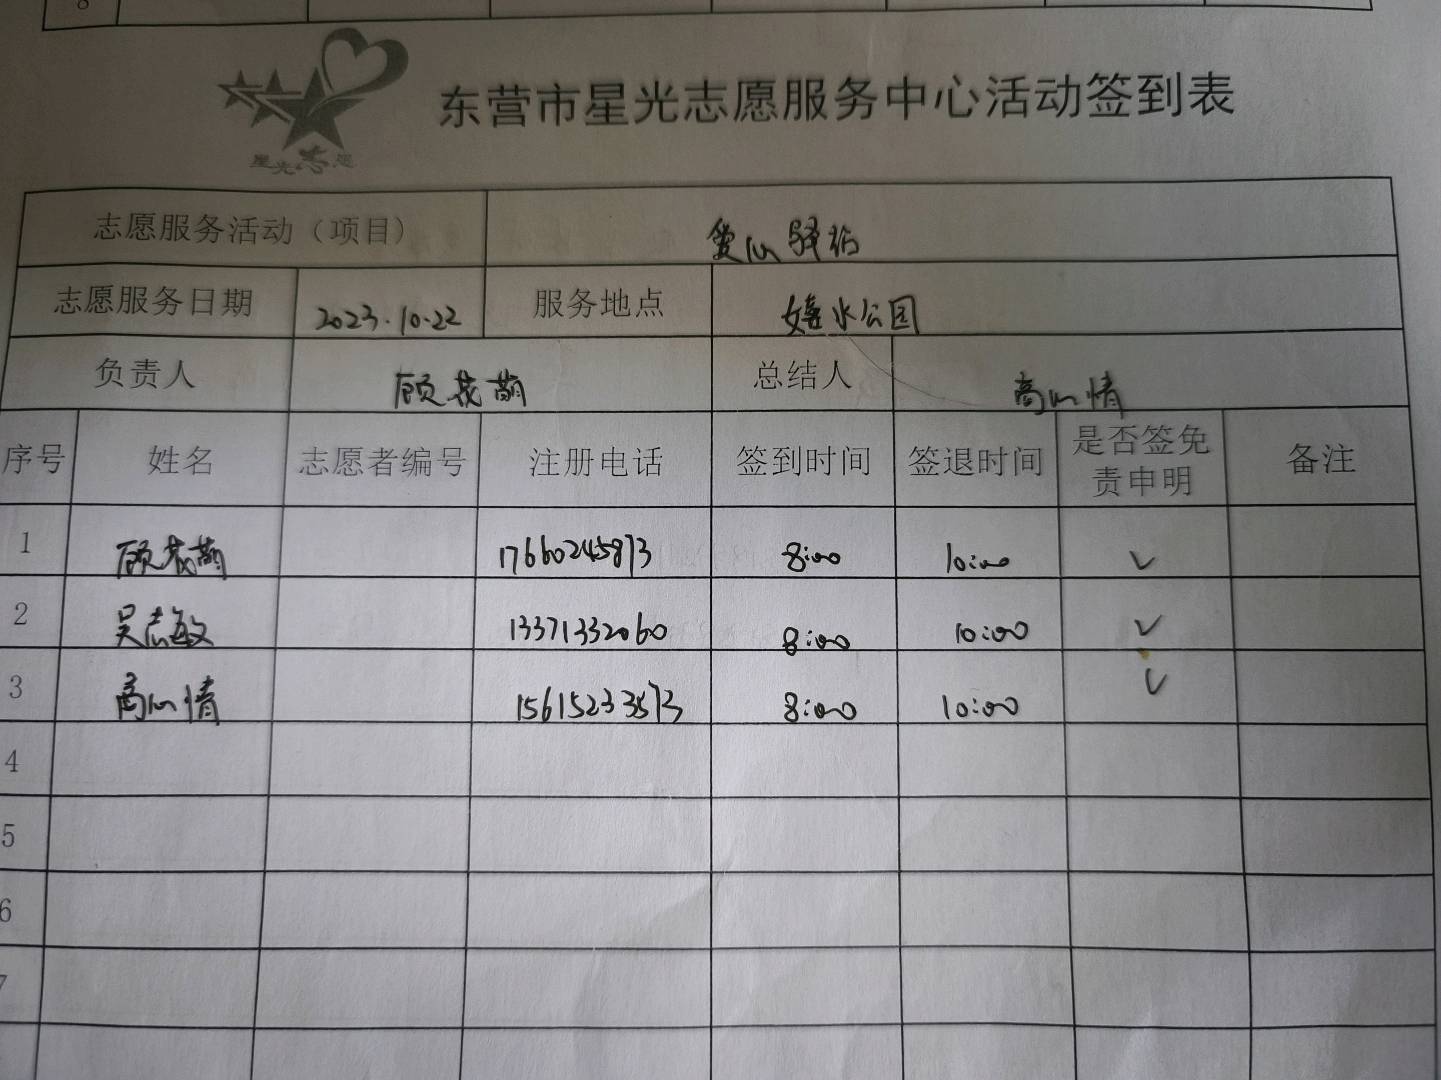 8
星光志愿
东营市星光志愿服务中心活动签到表
志愿服务活动（项目） 爱心驿站
志愿服务日期 2023.10.22 服务地点 嬉水公园
负责人 顾花萌 总结人 高心情
序号 姓名 志愿者编号 注册电话 签到时间 签退时间 是否签免责申明 备注
1 顾花萌 17660245873 8:00 10:00 ✓
2 吴志敏 13371332060 8:00 10:00 ✓
3 高心情 15615233573 8:00 10:00 ✓
4
5
6
7